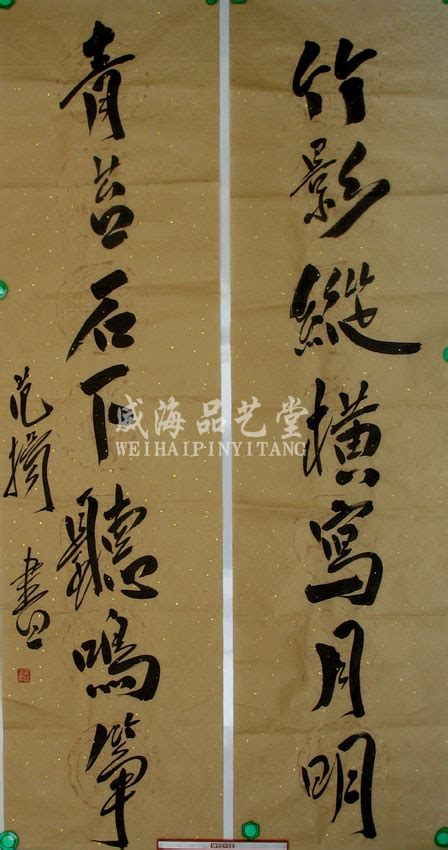 竹影縱橫寫月明
青苔石下聽鳴箏
范
書
威海品艺堂
WEIHAIPINYITANG
WEEYEE